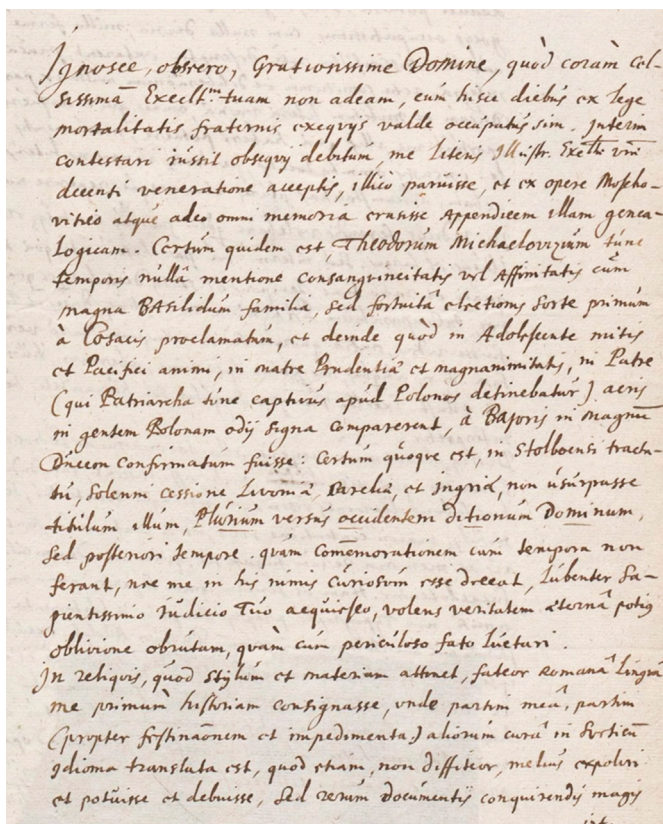 Ignosce, obsecro, Gratiosissime Domine, quòd coràm Cel-
sissimâ Execlt.^m tuam non adeam, cùm hisce diebus ex lege
mortalitatis fraternis exequijs valde occupatus sim. Interim
contestari iussit obsequij debitum, me literis Illustr. Excell.
decenti veneratione acceptis, illico paruisse, et ex opere Moscho-
vitico atque adeo omni memoria Appendicem illam genea-
logicam. Certum quidem est, Theodorum Michaelovizium tunc
temporis nullâ mentione consanguineitatis vel Affinitatis cum
magna BAsilidum familia, sed fortuitâ electionis sorte primùm
à Cosacis proclamatum, et deinde quòd in Adolescente mitis
et Pacifici animi, in matre Prudentiæ et magnanimitatis, in Patre
(qui Patriarcha tunc captivus apud Polonos detinebatur) acris
in gentem Polonam odij signa comparerent, à Bajoris in magnū
Ducem confirmatum fuisse: Certum quoque est, in Stolboensi tracta-
tu, solenni cessione Livoniæ, Careliæ, et Ingriæ, non usurpasse
titulum illum, Plurium versus occidentem ditionum Dominum,
sed posteriori tempore. quam Comēmorationem cum tempora non
ferant, nec me in his nimis curiosum esse deceat, lubenter Sa-
pientissimo Iudicio Tuo acquiesco, volens veritatem æternâ potiùs
oblivione obrutam, quàm cum periculoso fato luctari.
In reliquis, quod stylum et materiam attinet, fateor Romanâ Linguâ
me primùm historiam consignasse, unde partim meâ, partim
(propter festinaōnem et impedimenta) aliorum curâ in Sveticū
Idioma translata est, quod etiam, non diffiteor, melius expoliri
et potuisse et debuisse, sed rerum documentis conquirendis magis